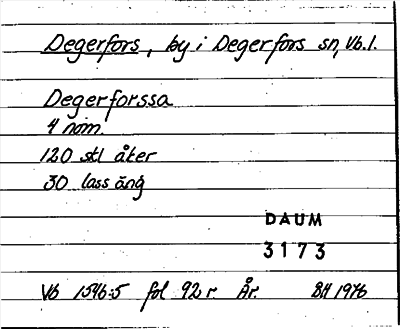 Degerfors, by i Degerfors sn, Vb.l.
Degerforssa
4 nom.
120 skl åker
30 lass äng
DAUM
3173
Vb 1546:5 fol 92 r. År. BH 1976